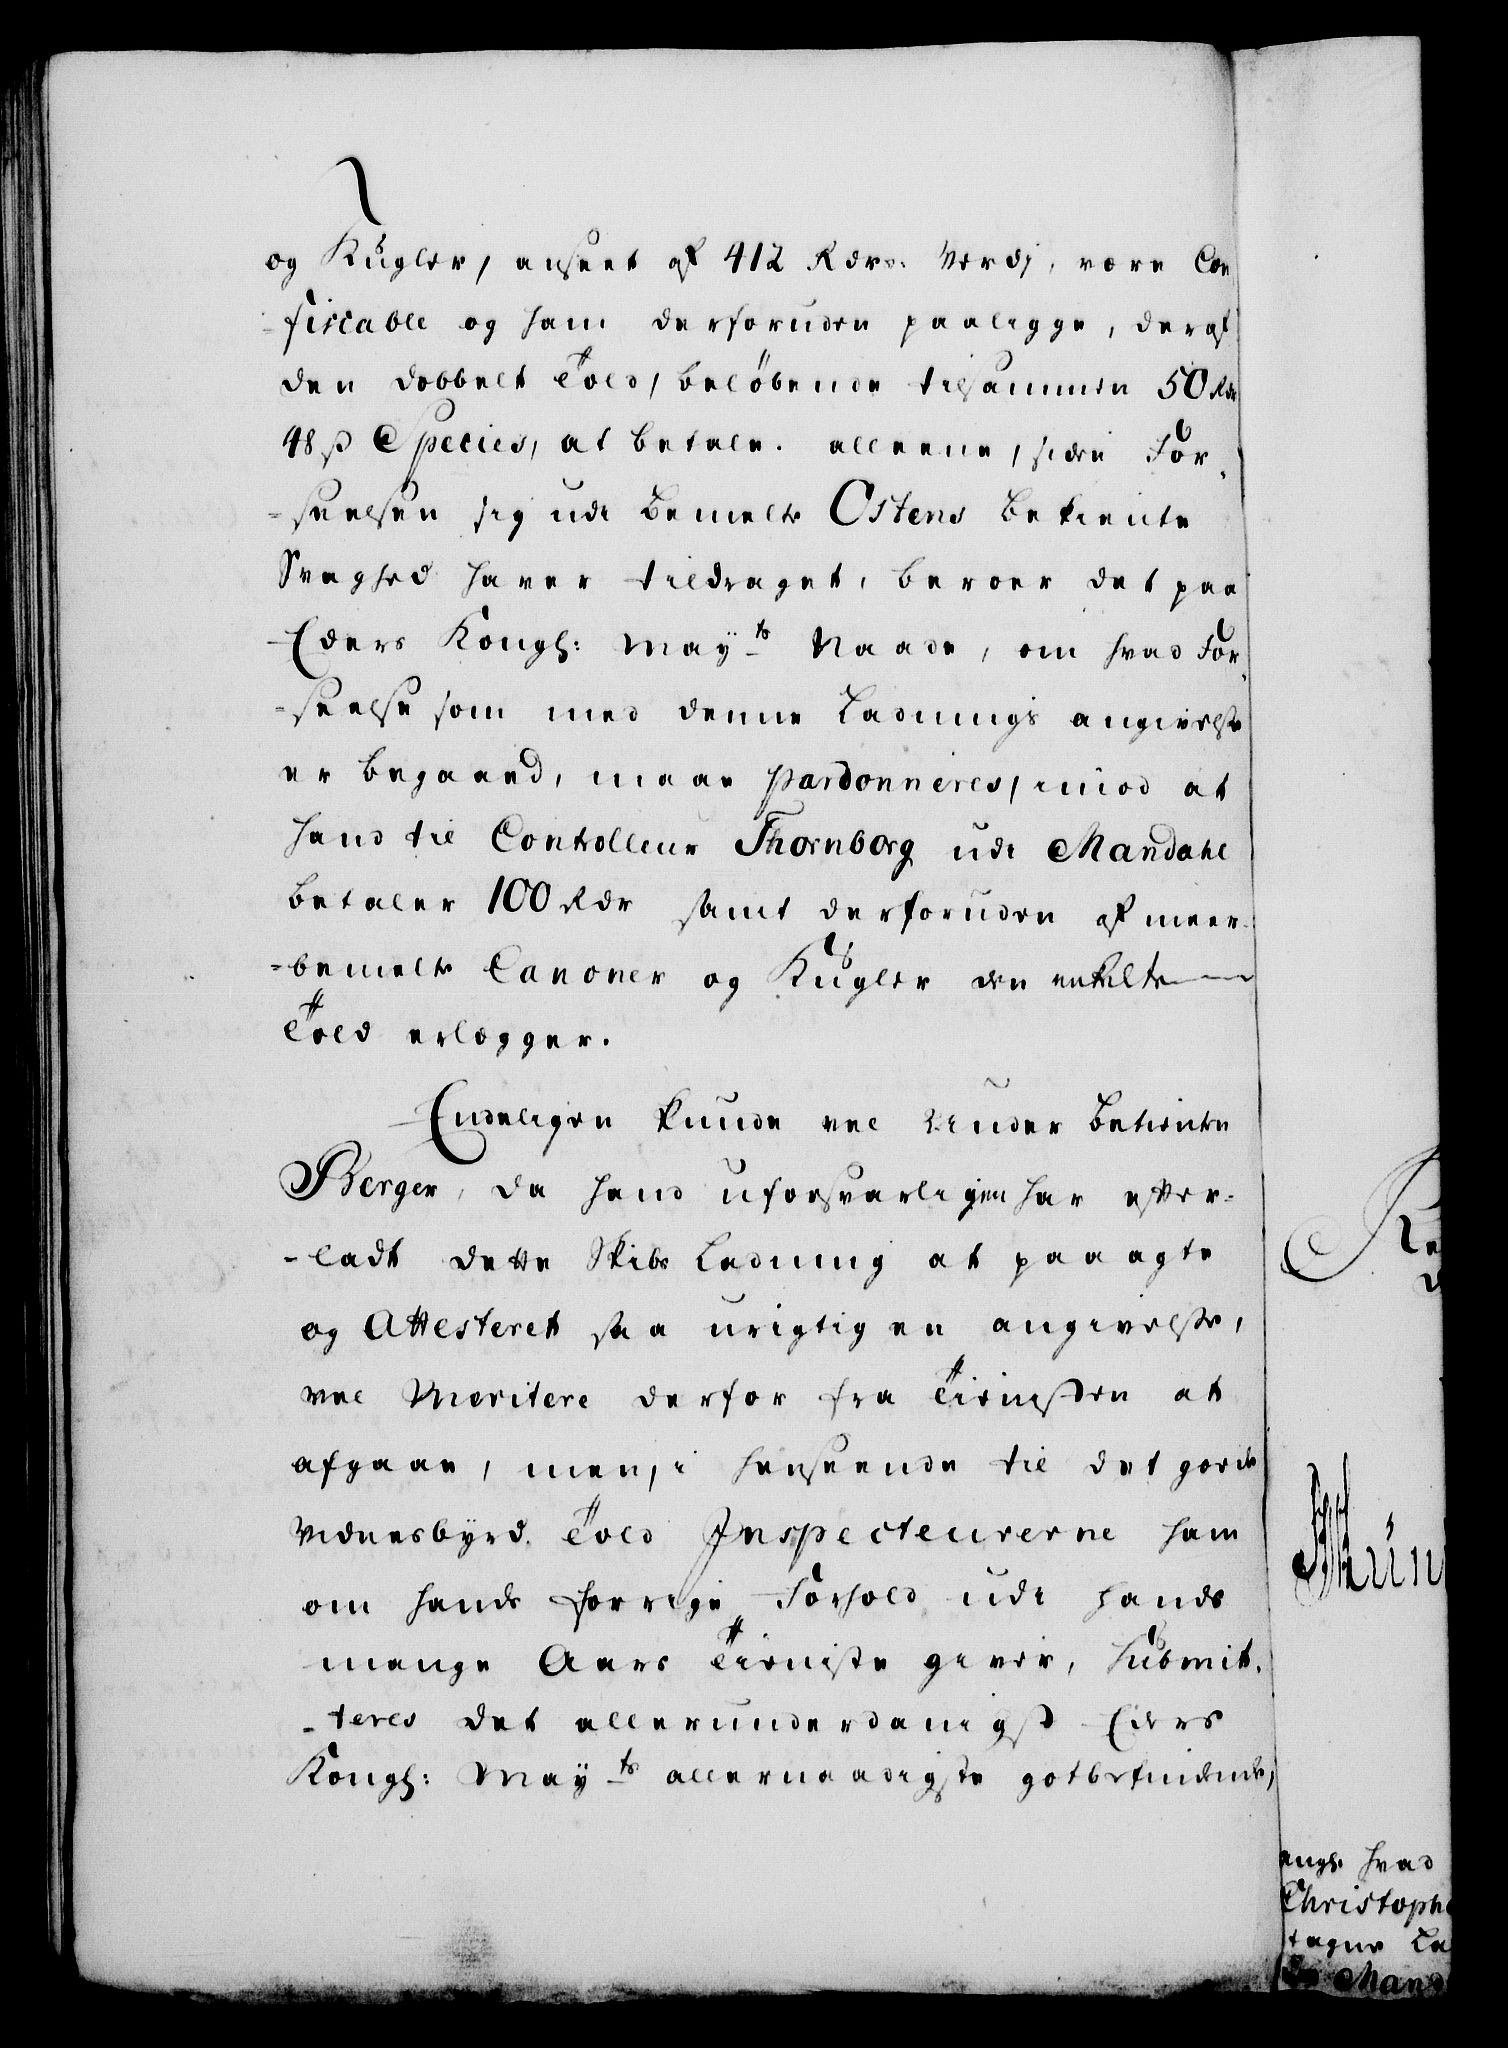 og Kugler, anseet af 412 Rdrs. Verdj, være Con
-fiscable og ham derforuden paalegge, deraf
den dobbelt Told, beløbende tilsammen 50 Rdr
48 ß Species, at betale. alleene, siden For-
-seelsen sig udi bemelte Ostens bekiente
Svaghed haver tildraget, beroer det paa
Eders Kongl: Mayts Naade, om hvad For-
-seelse som med denne Ladnings angivelse
er begaaed, maae pardonneres, imod at
hand til Controlleur Thornborg udi Mandahl
betaler 100 Rdr samt derforuden af meer-
-bemelte Canoner og Kugler den enkelte
Told erlægger.
Endeligen kunde vel Under betiente
Berger, da hand uforsvarligen har efter-
-ladt dette Skibs Ladning at paaagte
og Attesteret saa urigtig en angivelse,
vel Meritere derfor fra Tienesten at
afgaae, men, i henseende til det gode
Vidnesbyrd Told Inspecteurerne ham
om hands forrige Forhold udi hands
mange Aars Tieniste giver, Submit-
-teres det allerunderdanigst Eders
Kongl: Mayts allernaadigste gotbefindende,
hvad
Christoph
tagne La
Mand